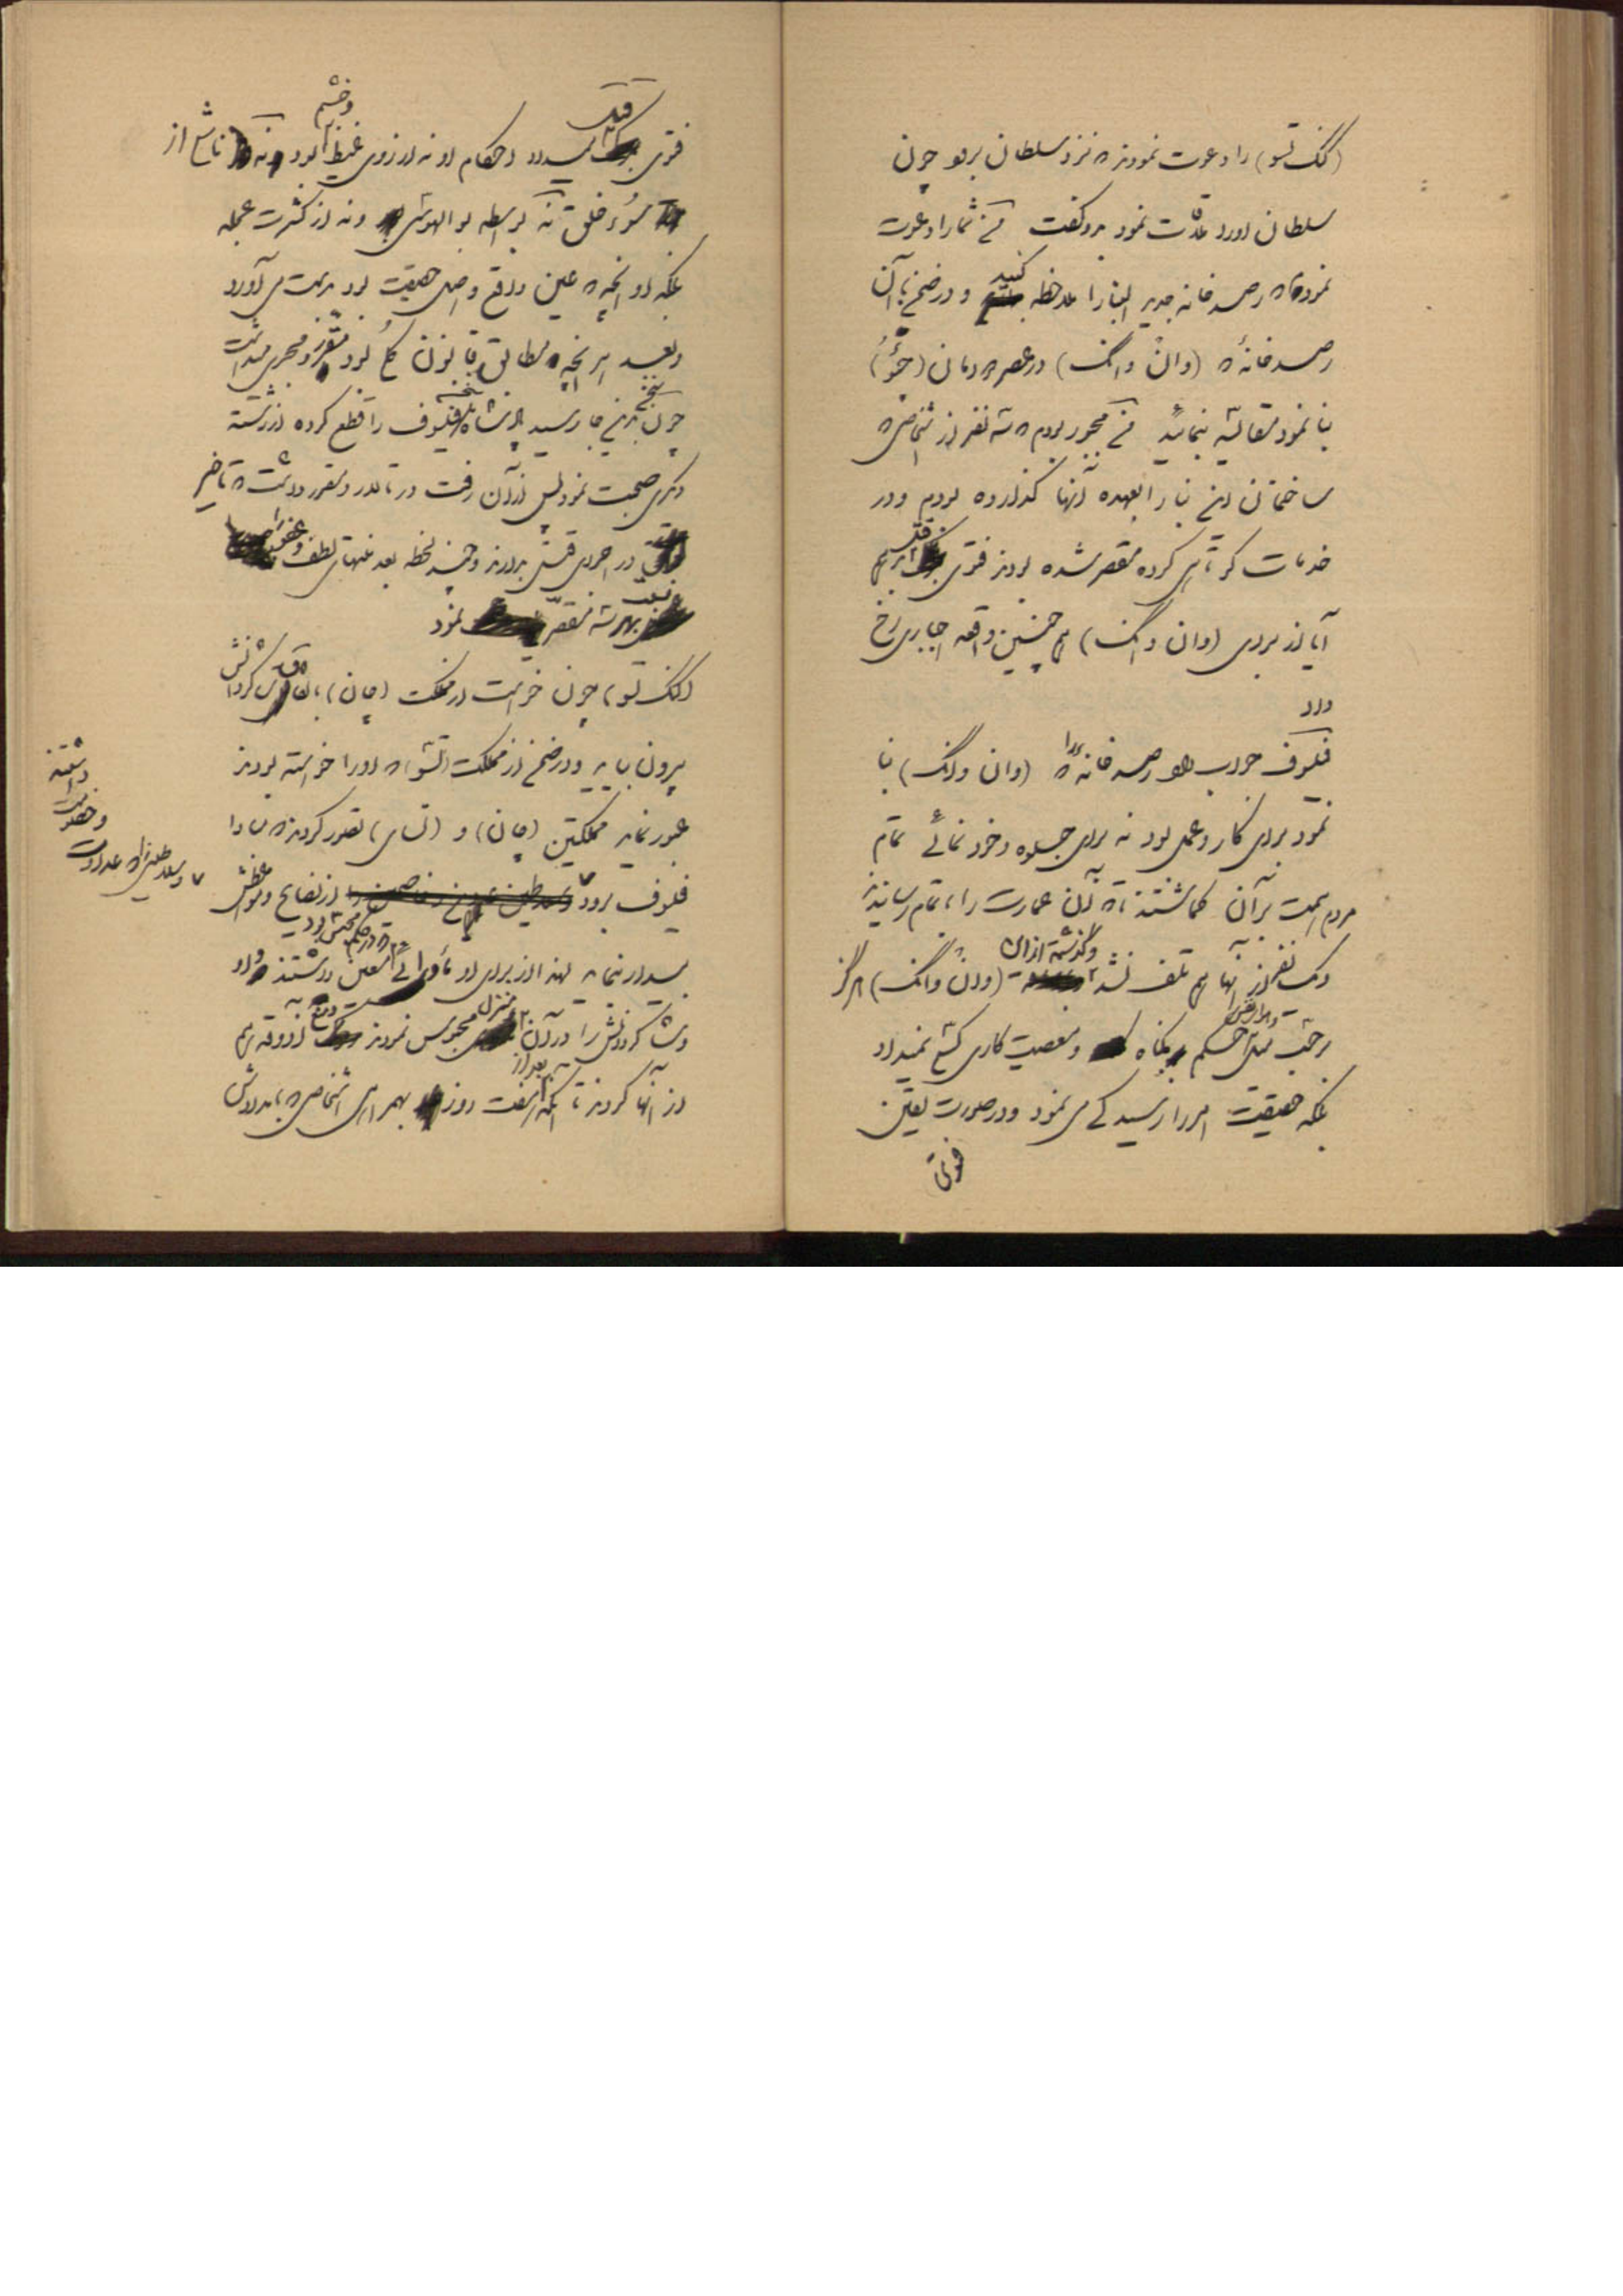 (کنگ تسو) را دعوت نمودند که نزد سلطان برود چون
سلطان او را ملاقات نمود بدو گفت من شما را دعوت
نموده‌ام که رصدخانه جدید البنا را ملاحظه کنید و در ضمن با آن
رصدخانه که (وان وانگ) در عصر دمان (جئو)
بنا نمود مقایسه نمائید من مجبور بودم که سه نفر از اشخاصی که
ساختمان این بنا را بعهده آنها گذارده بودم و در
خدمات کوتاهی کرده مقصر شده بودند فتوی قتل بدهم
آیا از برای (وان وانگ) هم چنین واقعه اجباری رخ
داد
فیلسوف جواب داد رصدخانه را که (وان وانگ) بنا
نمود برای کار و عمل بود نه برای جلوه و خودنمائی تمام
مردم همت بر آن گماشتند تا که آن عمارت را باتمام رسانیدند
و یک نفر از آنها هم تلف نشد و گذشته از آن (وان وانگ) هرگز
حکم بیگناه و معصیت‌کاری کسی نمیداد
بلکه حقیقت امر را رسیدگی می نمود و در صورت یقین
فتوی
فتوی قتل میداد احکام او نه از روی غیظ و خشم بود و نه ناشی از
سوء خلق نه بواسطه بوالهوسی و نه از کثرت عجله
بلکه او آنچه که عین واقع و اصل حقیقت بود بدست می آورد
و بعد هر آنچه مطابق قانون کل بود مقرر و مجری میداشت
چون سخن باین جا رسید پادشاه سخن فیلسوف را قطع کرده از رشته
دیگری صحبت نمود پس از آن رفت در تالار و مقرر داشت که تأخیر
در اجرای قتل بدارند و چند لحظه بعد منتهای لطف و عفو را
نسبت بهر سه مقصر نمود
(کنگ تسو) چون خواست از مملکت (چان) با شاگردانش
بیرون بیاید و در ضمن از مملکت (تشو) که او را خواسته بودند
عبور نماید مملکتین (چان) و (تسای) تصور کردند که مبادا
فیلسوف برود از نصایح و مواعظش
بیدار نماید لهذا از برای او مأوائی معین داشتند که در حکم محبس بود
و شاگردانش را در آن منزل محبوس نمودند و منع آذوقه هم
از آنها کردند تا آنکه بعد از هفت روز بهمراهی اشخاصی که بامدادش
داشتند
و خصومت
و سلاطینی را که عداوت